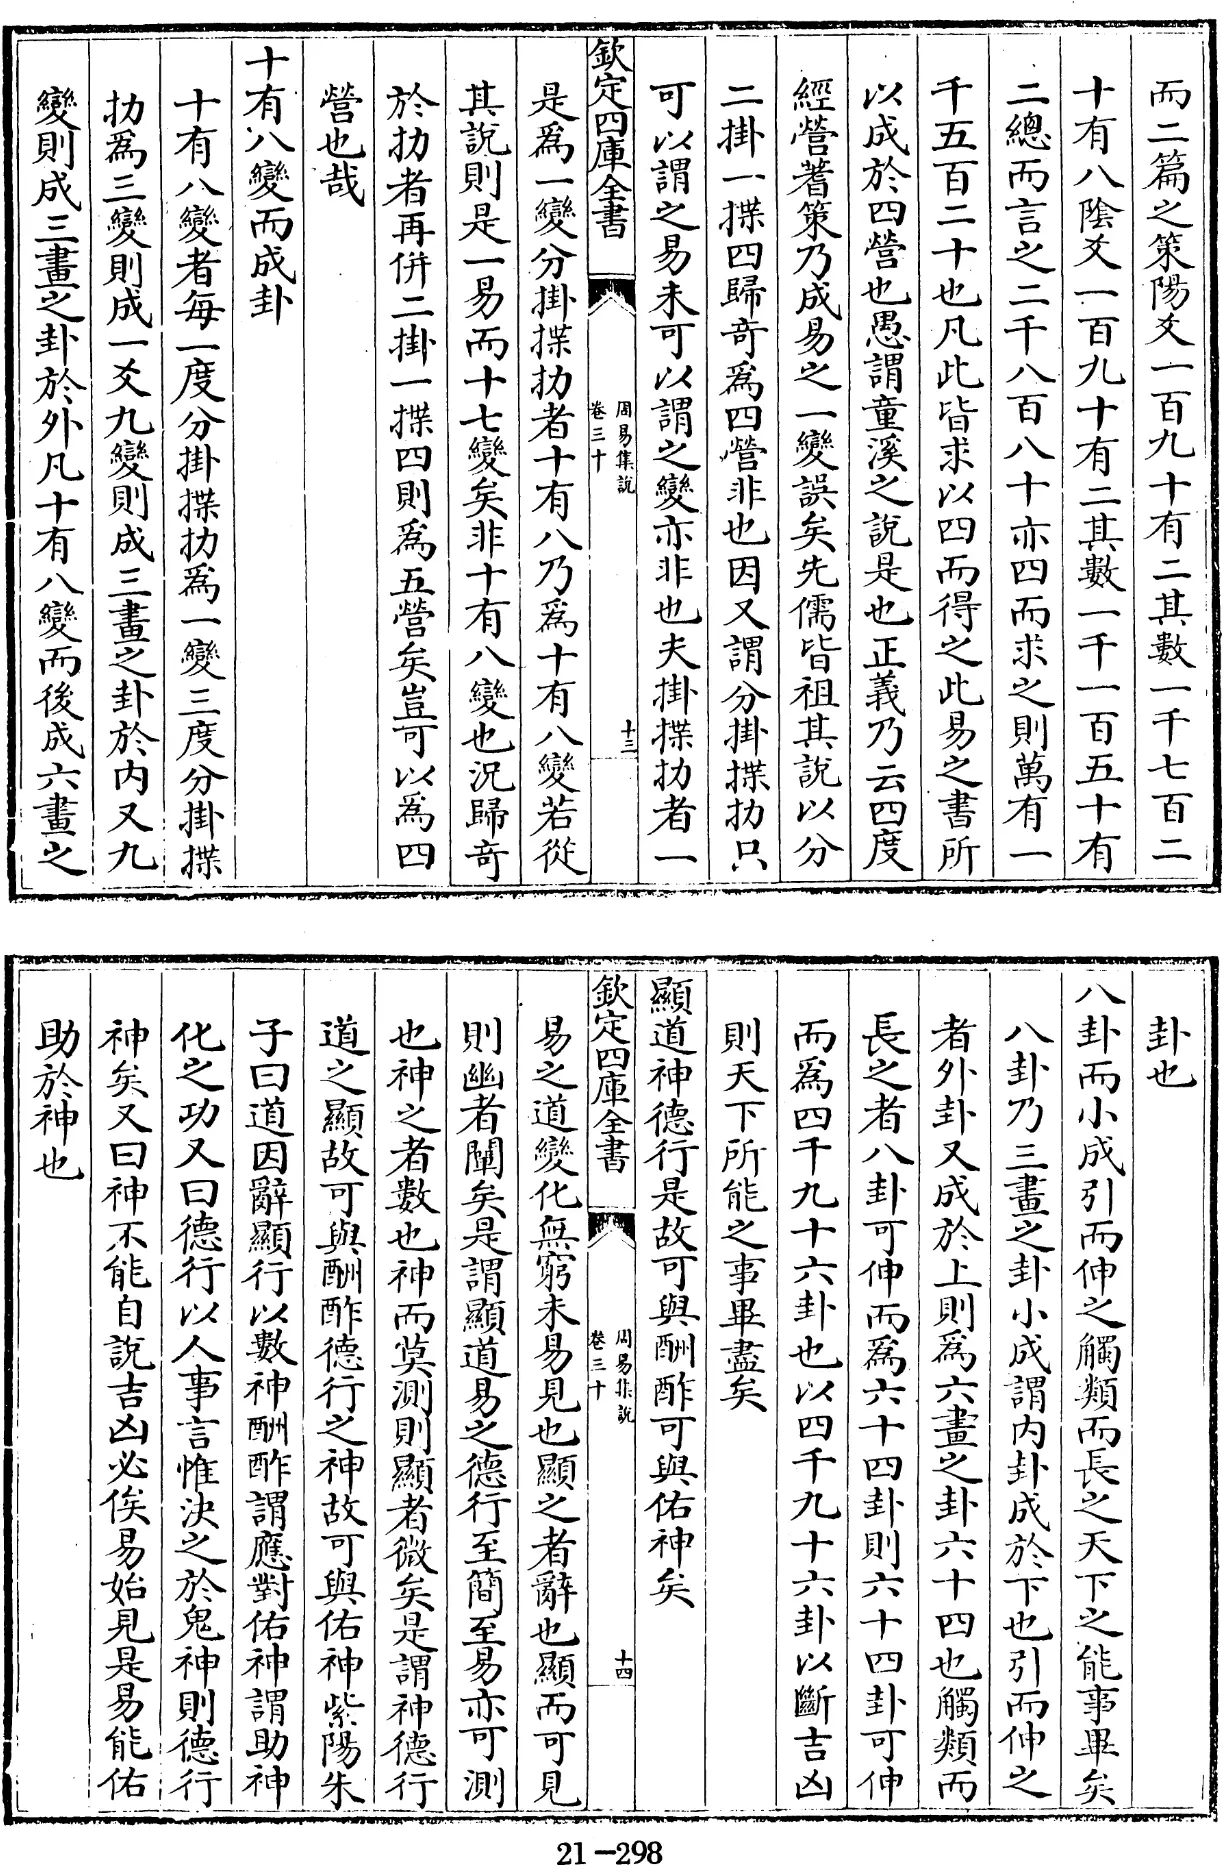 而二篇之策陽爻一百九十有二其數一千七百二
十有八陰爻一百九十有二其數一千一百五十有
二總而言之二千八百八十亦四而求之則萬有一
千五百二十也凡此皆求以四而得之此易之書所
以成於四營也愚謂童溪之說是也正義乃云四度
經營蓍策乃成易之一變誤矣先儒皆祖其說以分
二掛一揲四歸奇爲四營非也因又謂分掛揲扐只
可以謂之易未可以謂之變亦非也夫掛揲扐者一
欽定四庫全書
周易集說
卷三十
十三
是爲一變分掛揲扐者十有八乃爲十有八變若從
其說則是一易而十七變矣非十有八變也況歸奇
於扐者再併二掛一揲四則爲五營矣豈可以爲四
營也哉
十有八變而成卦
十有八變者每一度分掛揲扐爲一變三度分掛揲
扐爲三變則成一爻九變則成三畫之卦於內又九
變則成三畫之卦於外凡十有八變而後成六畫之
卦也
八卦而小成引而伸之觸類而長之天下之能事畢矣
八卦乃三畫之卦小成謂內卦成於下也引而伸之
者外卦又成於上則爲六畫之卦六十四也觸類而
長之者八卦可伸而爲六十四卦則六十四卦可伸
而爲四千九十六卦也以四千九十六卦以斷吉凶
則天下所能之事畢盡矣
顯道神德行是故可與酬酢可與佑神矣
欽定四庫全書
周易集說
卷三十
十四
易之道變化無窮未易見也顯之者辭也顯而可見
則幽者闡矣是謂顯道易之德行至簡至易亦可測
也神之者數也神而莫測則顯者微矣是謂神德行
道之顯故可與酬酢德行之神故可與佑神紫陽朱
子曰道因辭顯行以數神酬酢謂應對佑神謂助神
化之功又曰德行以人事言惟決之於鬼神則德行
神矣又曰神不能自說吉凶必俟易始見是易能佑
助於神也
21-298